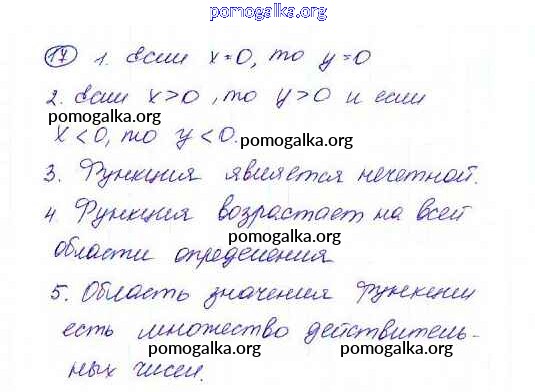 pomogalka.org
17 1. Если x=0, то y=0
2. Если x>0, то y>0 и если
pomogalka.org
x<0, то y<0. pomogalka.org
3. Функция является нечетной.
4. Функция возрастает на всей
pomogalka.org
области определения
pomogalka.org
5. Область значения функции
есть множество действитель-
pomogalka.org pomogalka.org
ных чисел.